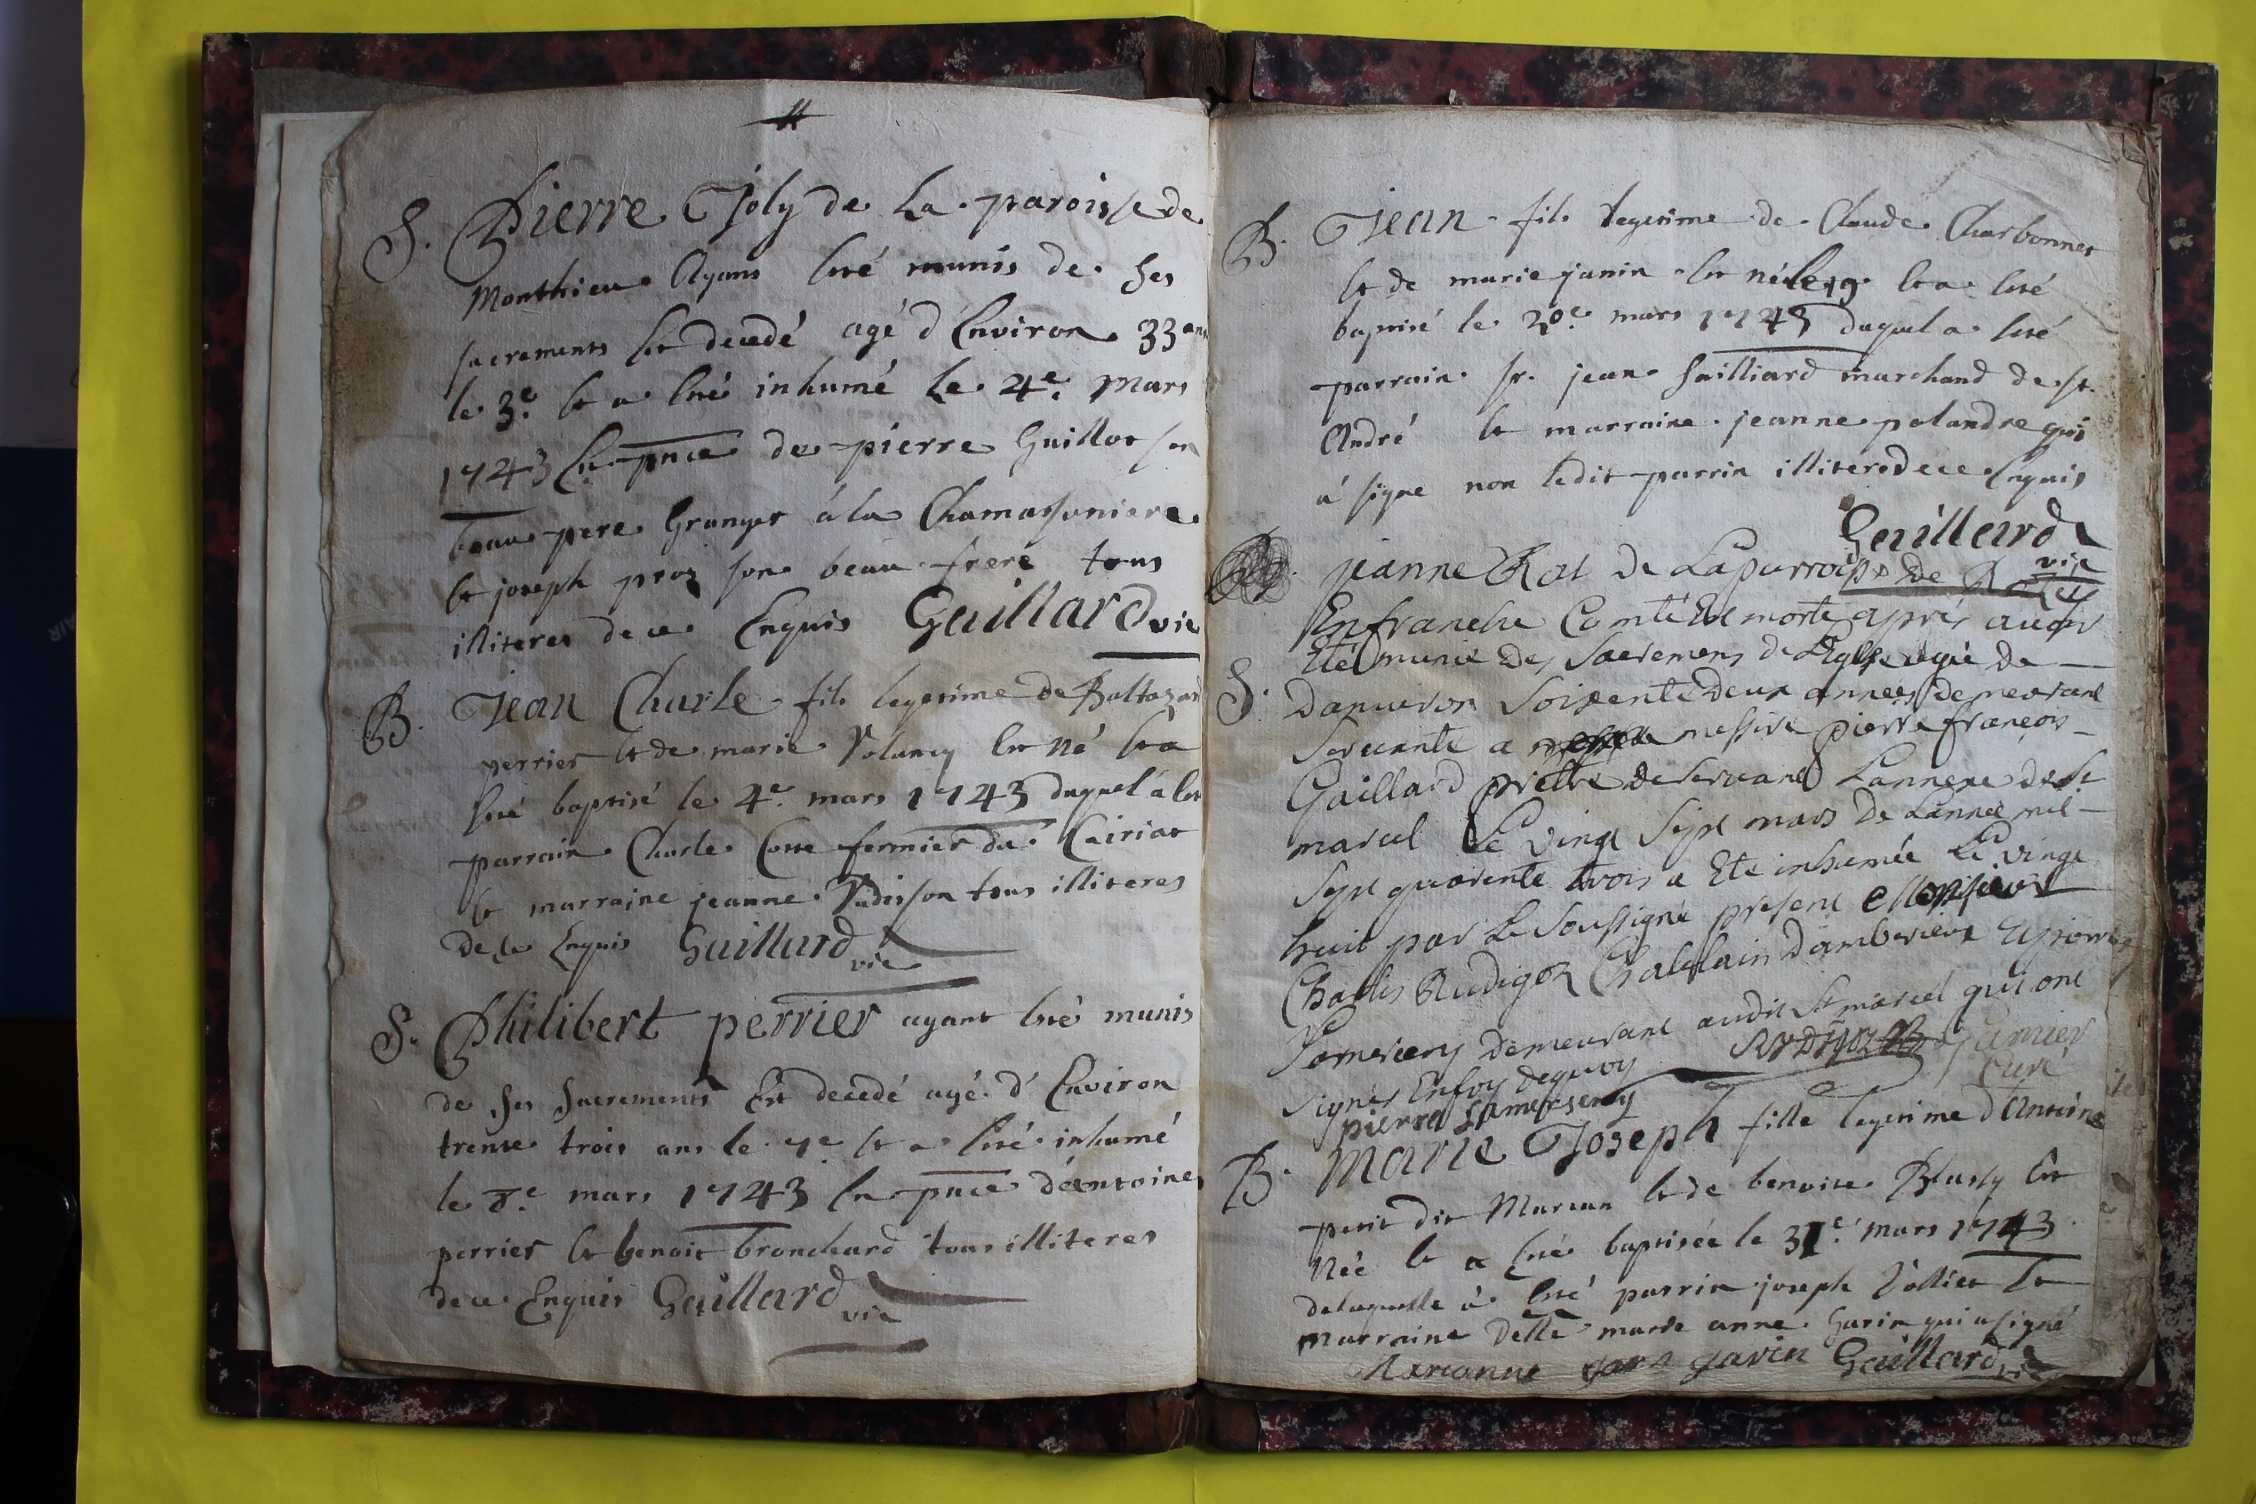 S. Pierre Joly de la paroisse de
Monthieu Ayans eté munis de ses
sacrements est decedé agé d'Environ 33 ans
le 3e. et a eté inhumé le 4e. Mars
1743 En pnce de pierre Guillot son
beau pere Granger á la Chamassuniere
et joseph proz son beau frere tous
illiteres de ce Enquis Gaillard vic
B. Jean Charle fils legetime de Baltazard
perrier et de marie Volancy est né et a
eté baptisé le 4e. mars 1743 duquel á eté
parrain Charle Coste fermier du Cairiat
et marraine jeanne Vadisson tous illiteres
de ce Enquis Gaillard vic
S. Philibert perrier ayant eté munis
de ses sacrements Est decedé agé d'Environ
trente trois ans le 7e et a eté inhumé
le 8e. mars 1743 En pnce d'éantoines
perrier et benoit bronchard tous illiteres
de ce Enquis Gaillard vic
B. Jean fils legetime de Claude Charbonnet
et de marie janin est né le 19 et a eté
baptisé le 20e mars 1743 duquel a eté
parrain sr. jean Gailliard marchand de st.
André et marraine jeanne polandre qui
á signe non ledit parrin illitere de ce Enquis
Gaillard vic
jeanne Rol de Laparroisse de
Enfranche Comté Est morte aprés avoir
Eté munie des Sacremens de L'Eglise agée de
S. danviron Soixente deux années demeurant
Servante a messire pierre françois
Gaillard prêtre deservant Lannexe de St
marcel Le vingt Sept mars de Lannée mil
Sept quarente trois a Ete inhumée Le vingt
huit par Le Soussigné present Monsieur
Charles Rudigoz Chatelain damberieux
Somercery demeurant audit St marcel qui ont
Signés Enfoy dequoy Rudigoz Garnier
pierre Samerseroy curé
B. Marie Joseph fille legetime d'Antoine
petit dit Marian et de benoite Blussy Est
Née et a eté baptisée le 31e. mars 1743
delaquelle á eté parrin joseph Vollier Et
marraine Delle marie anne Garin qui a signé
Marianne garin Gaillard vic